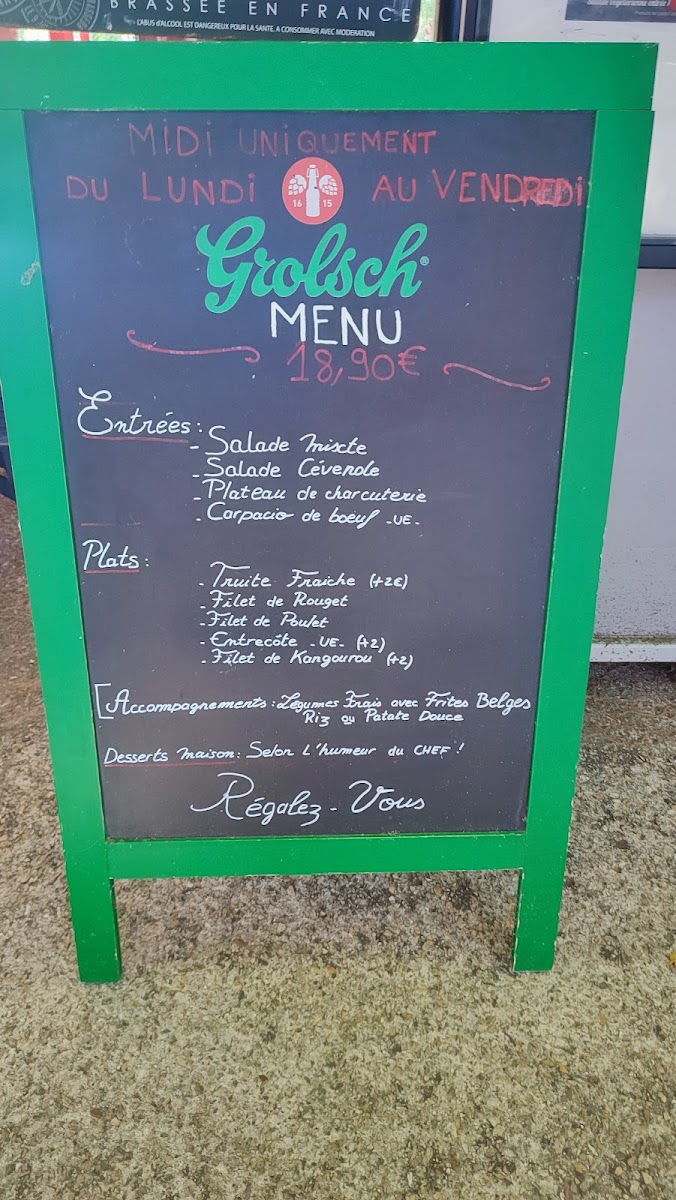 BRASSÉE EN FRANCE
L'ABUS d'ALCOOL EST DANGEREUX POUR LA SANTE. A CONSOMMER AVEC MODERATION
MIDI UNIQUEMENT
DU LUNDI AU VENDREDI
16 15
Grolsch
MENU
18,90€
Entrées:
- Salade Miscte
- Salade Cévenole
- Plateau de charcuterie
- Carpacio de boeuf -UE-
Plats:
- Truite Fraiche (+2€)
- Filet de Rouget
- Filet de Poulet
- Entrecôte -UE- (+2)
- Filet de Kangourou (+2)
[Accompagnements: Légumes Frais avec Frites Belges
Riz ou Patate Douce
Desserts Maison: Selon L'humeur du CHEF !
Régalez-Vous